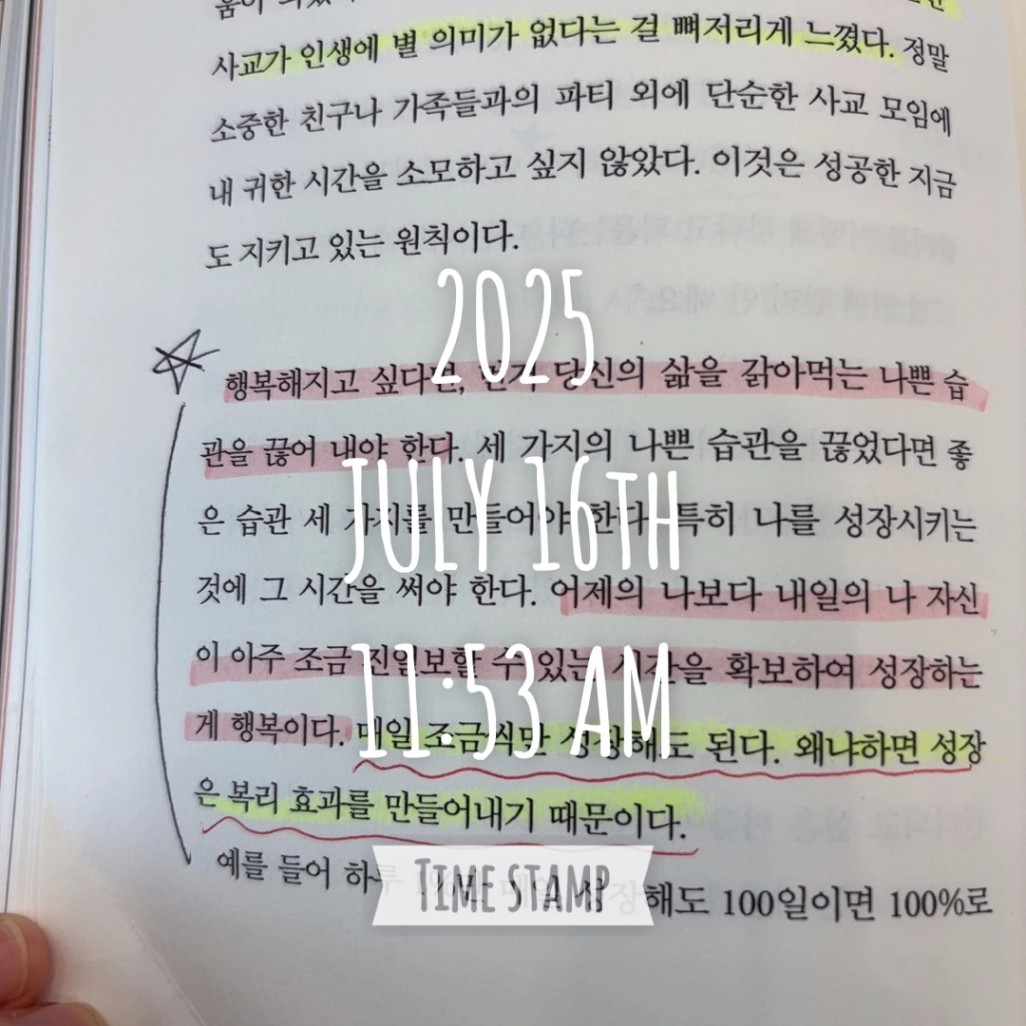 사교가 인생에 별 의미가 없다는 걸 뼈저리게 느꼈다. 정말
소중한 친구나 가족들과의 파티 외에 단순한 사교 모임에
내 귀한 시간을 소모하고 싶지 않았다. 이것은 성공한 지금
도 지키고 있는 원칙이다.
2025
행복해지고 싶다면, 먼저 당신의 삶을 갉아먹는 나쁜 습
관을 끊어 내야 한다. 세 가지의 나쁜 습관을 끊었다면 좋
은 습관 세 가지를 만들어야 한다. 특히 나를 성장시키는
JULY 16TH
것에 그 시간을 써야 한다. 어제의 나보다 내일의 나 자신
이 아주 조금 진일보할 수 있는 시간을 확보하여 성장하는
11:53 AM
게 행복이다. 매일 조금씩만 성장해도 된다. 왜냐하면 성장
은 복리 효과를 만들어내기 때문이다.
예를 들어 하루 1%만 매일 성장해도 100일이면 100%로
TIME STAMP